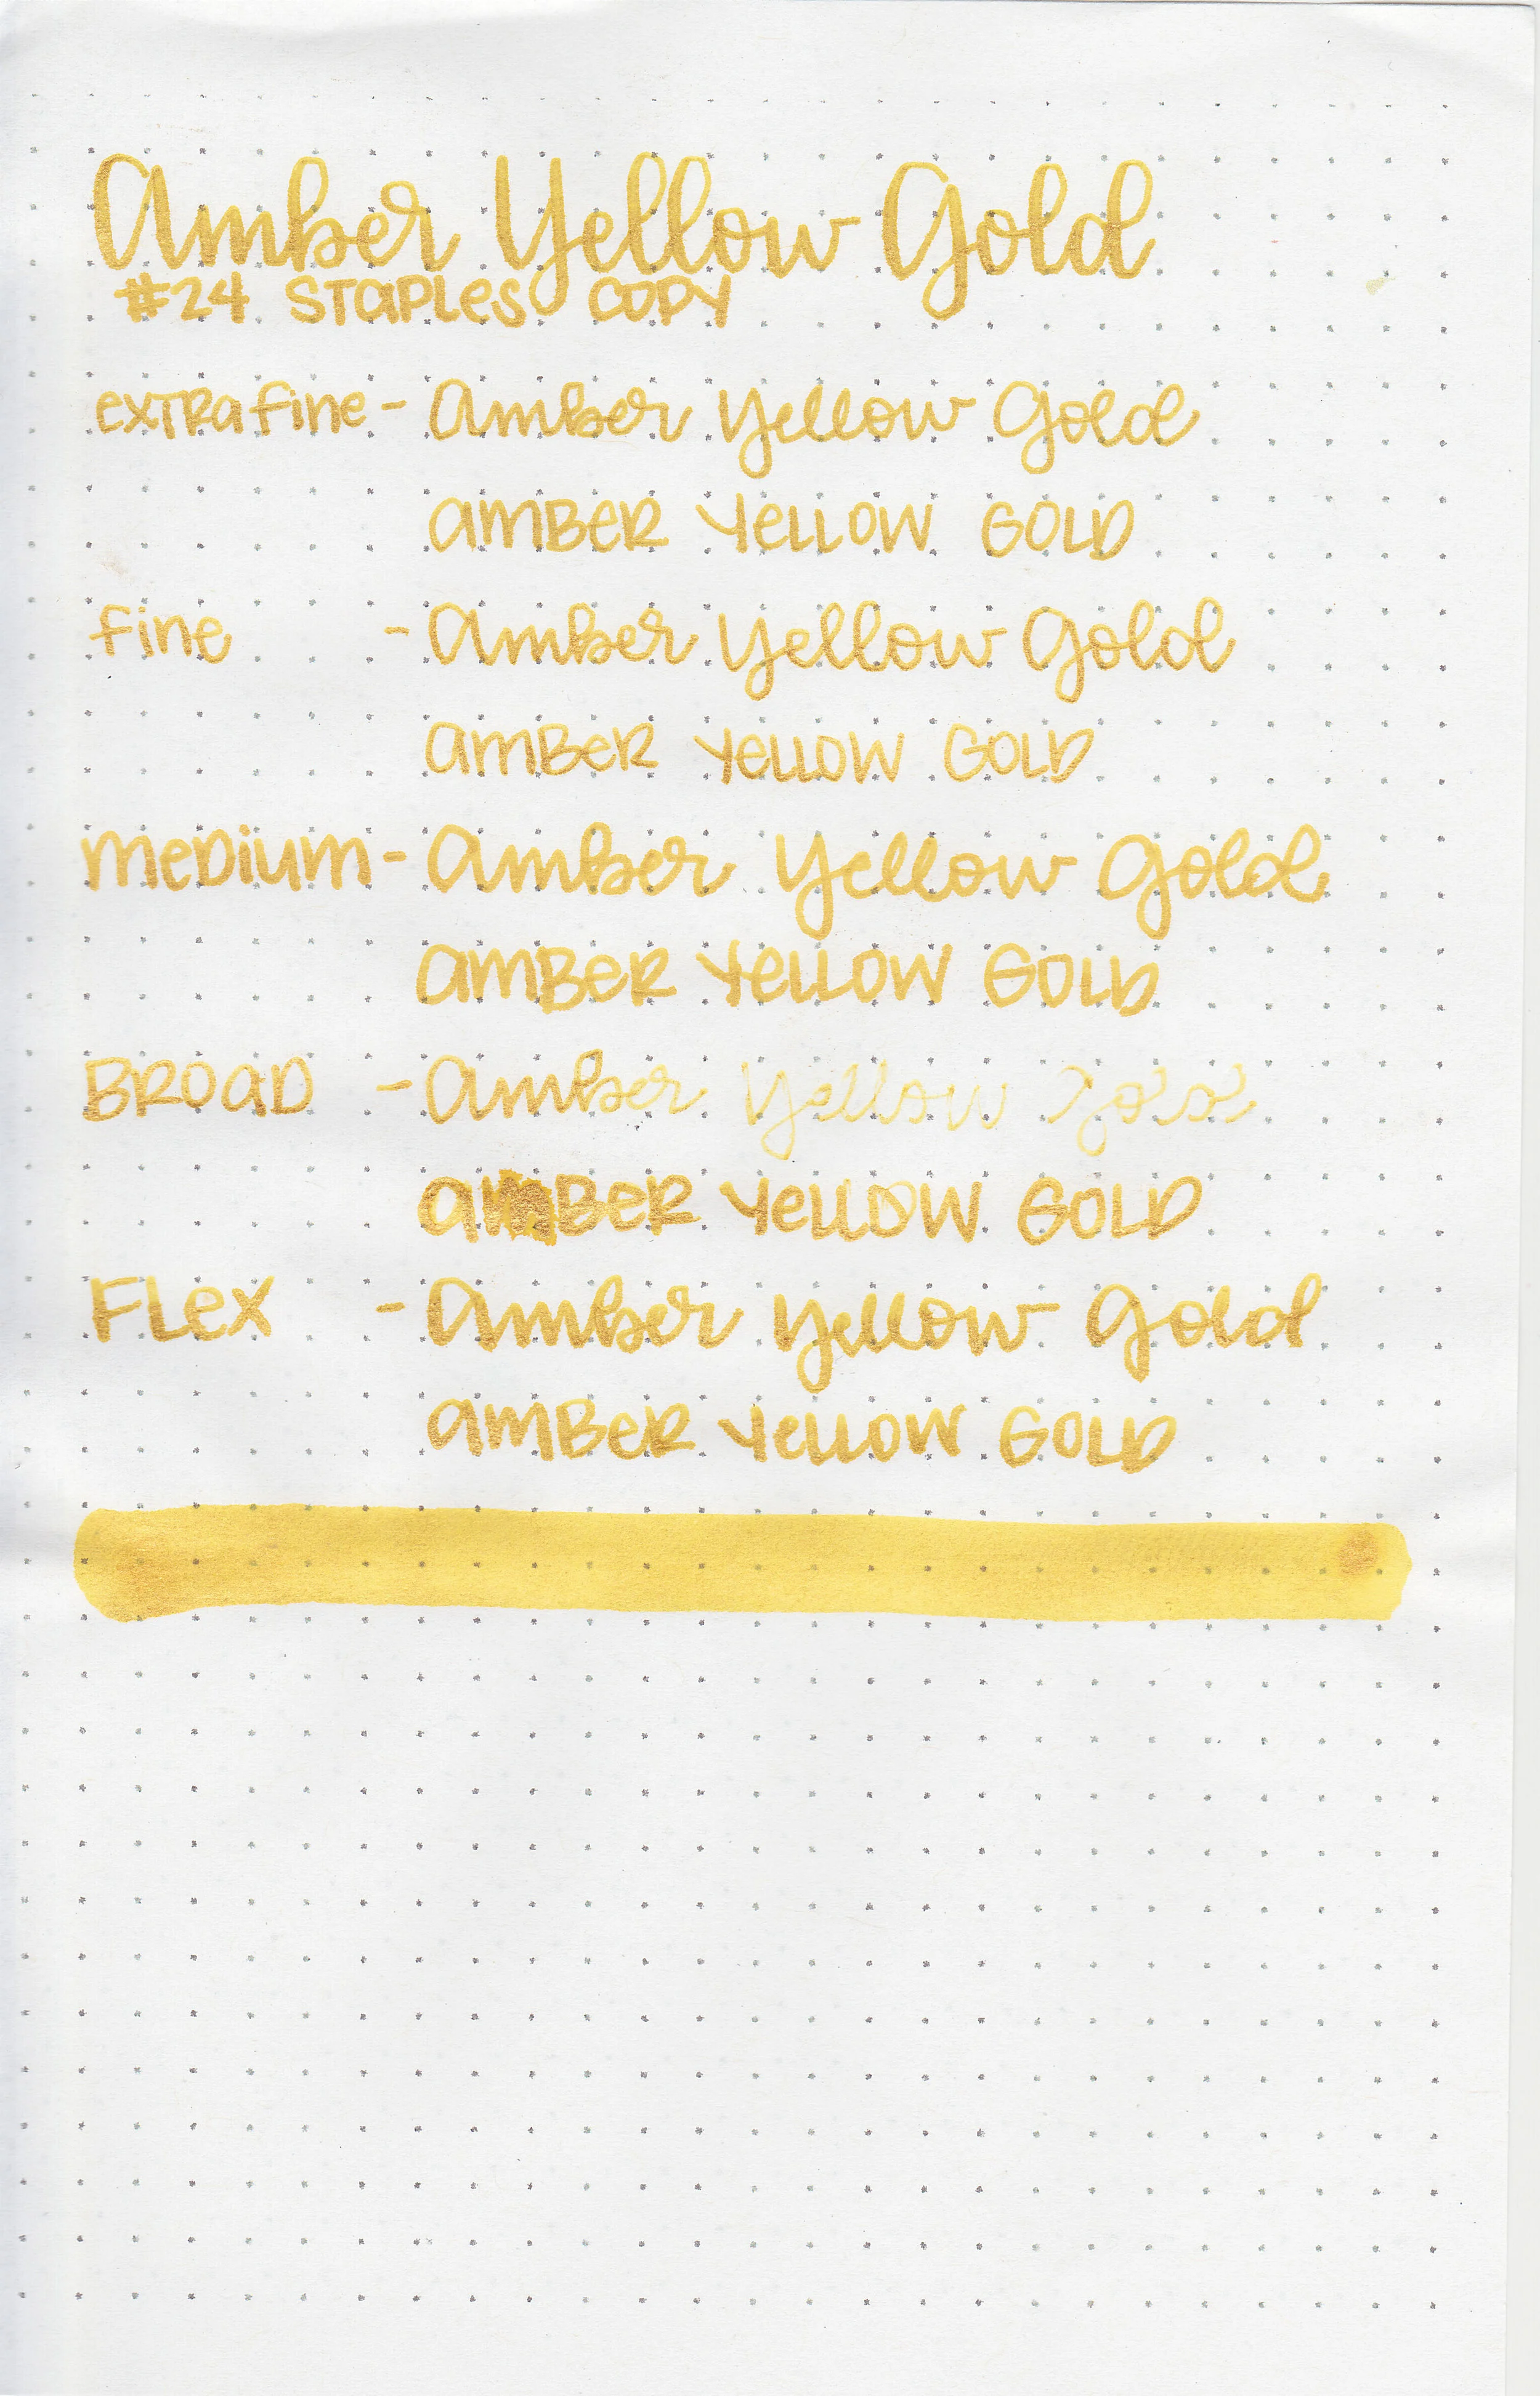 Amber Yellow Gold
#24 STaPLes COPY
exTRafine - Amber Yellow Gold
amBeR YeLLOW GOLD
fine - Amber Yellow Gold
amBeR YeLLOW GOLD
meDium - Amber Yellow Gold
amBeR YeLLOW GOLD
BROaD - Amber Yellow Gold
amBeR YeLLOW GOLD
FLex - Amber Yellow Gold
amBeR YeLLOW GOLD